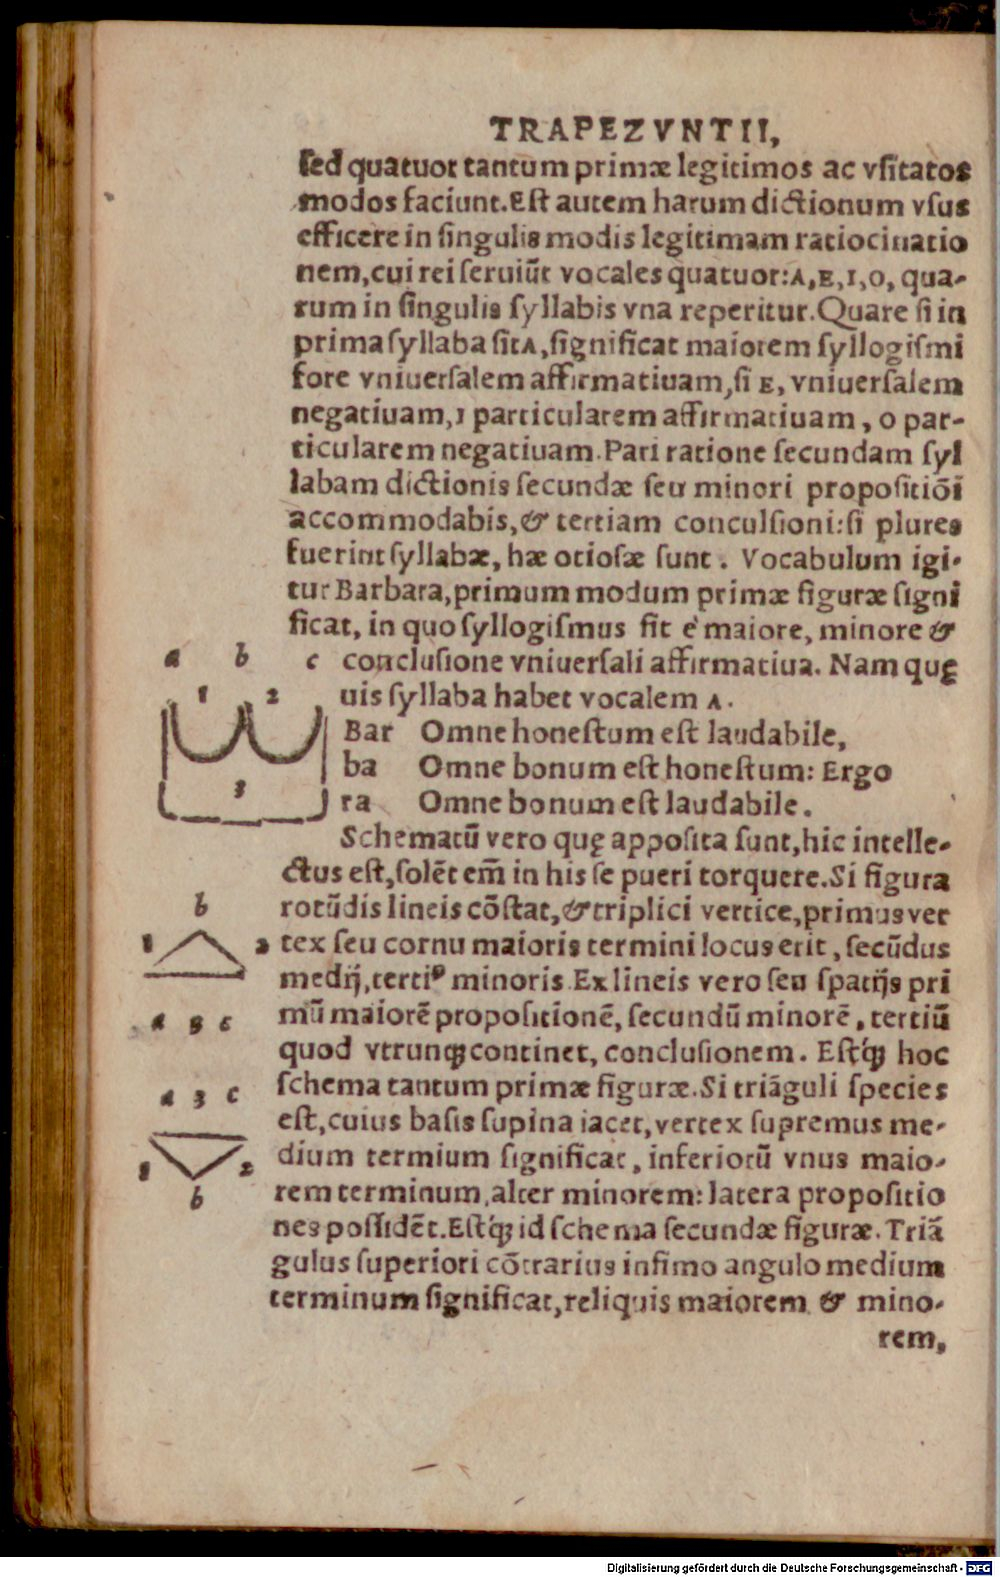 TRAPEZVNTII,
sed quatuor tantum primæ legitimos ac vsitatos
modos faciunt. Est autem harum dictionum vsus
efficere in singulis modis legitimam ratiocinatio
nem, cui rei seruiũt vocales quatuor: A, E, I, O, qua-
rum in singulis syllabis vna reperitur. Quare si in
prima syllaba sit A, significat maiorem syllogismi
fore vniuersalem affirmatiuam, si E, vniuersalem
negatiuam, I particularem affirmatiuam, O par-
ticularem negatiuam. Pari ratione secundam syl
labam dictionis secundæ seu minori propositiõi
accommodabis, & tertiam conculsioni: si plures
fuerint syllabæ, hæ otiosæ sunt. Vocabulum igi-
tur Barbara, primum modum primæ figuræ signi
ficat, in quo syllogismus fit è maiore, minore &
conclusione vniuersali affirmatiua. Nam quę
uis syllaba habet vocalem A.
a b c
1 2
3
Bar Omne honestum est laudabile,
ba Omne bonum est honestum: Ergo
ra Omne bonum est laudabile.
Schematũ vero quę apposita sunt, hic intelle-
ctus est, solẽt em̃ in his se pueri torquere. Si figura
rotũdis lineis cõstat, & triplici vertice, primus ver
tex seu cornu maioris termini locus erit, secũdus
medij, terti⁹ minoris. Ex lineis vero seu spatijs pri
mũ maiorẽ propositionẽ, secundũ minorẽ, tertiũ
quod vtrunq́ue continet, conclusionem. Estq́ue hoc
schema tantum primæ figuræ. Si triãguli species
est, cuius basis supina iacet, vertex supremus me-
dium termium significat, inferiorũ vnus maio-
rem terminum, alter minorem: latera propositio
nes possidẽt. Estq́ue id schema secundæ figuræ. Triã
gulus superiori cõtrarius infimo angulo medium
terminum significat, reliquis maiorem & mino-
rem,
b
1 2
a 3 c
a 3 c
1 2
b
Digitalisierung gefördert durch die Deutsche Forschungsgemeinschaft - DFG